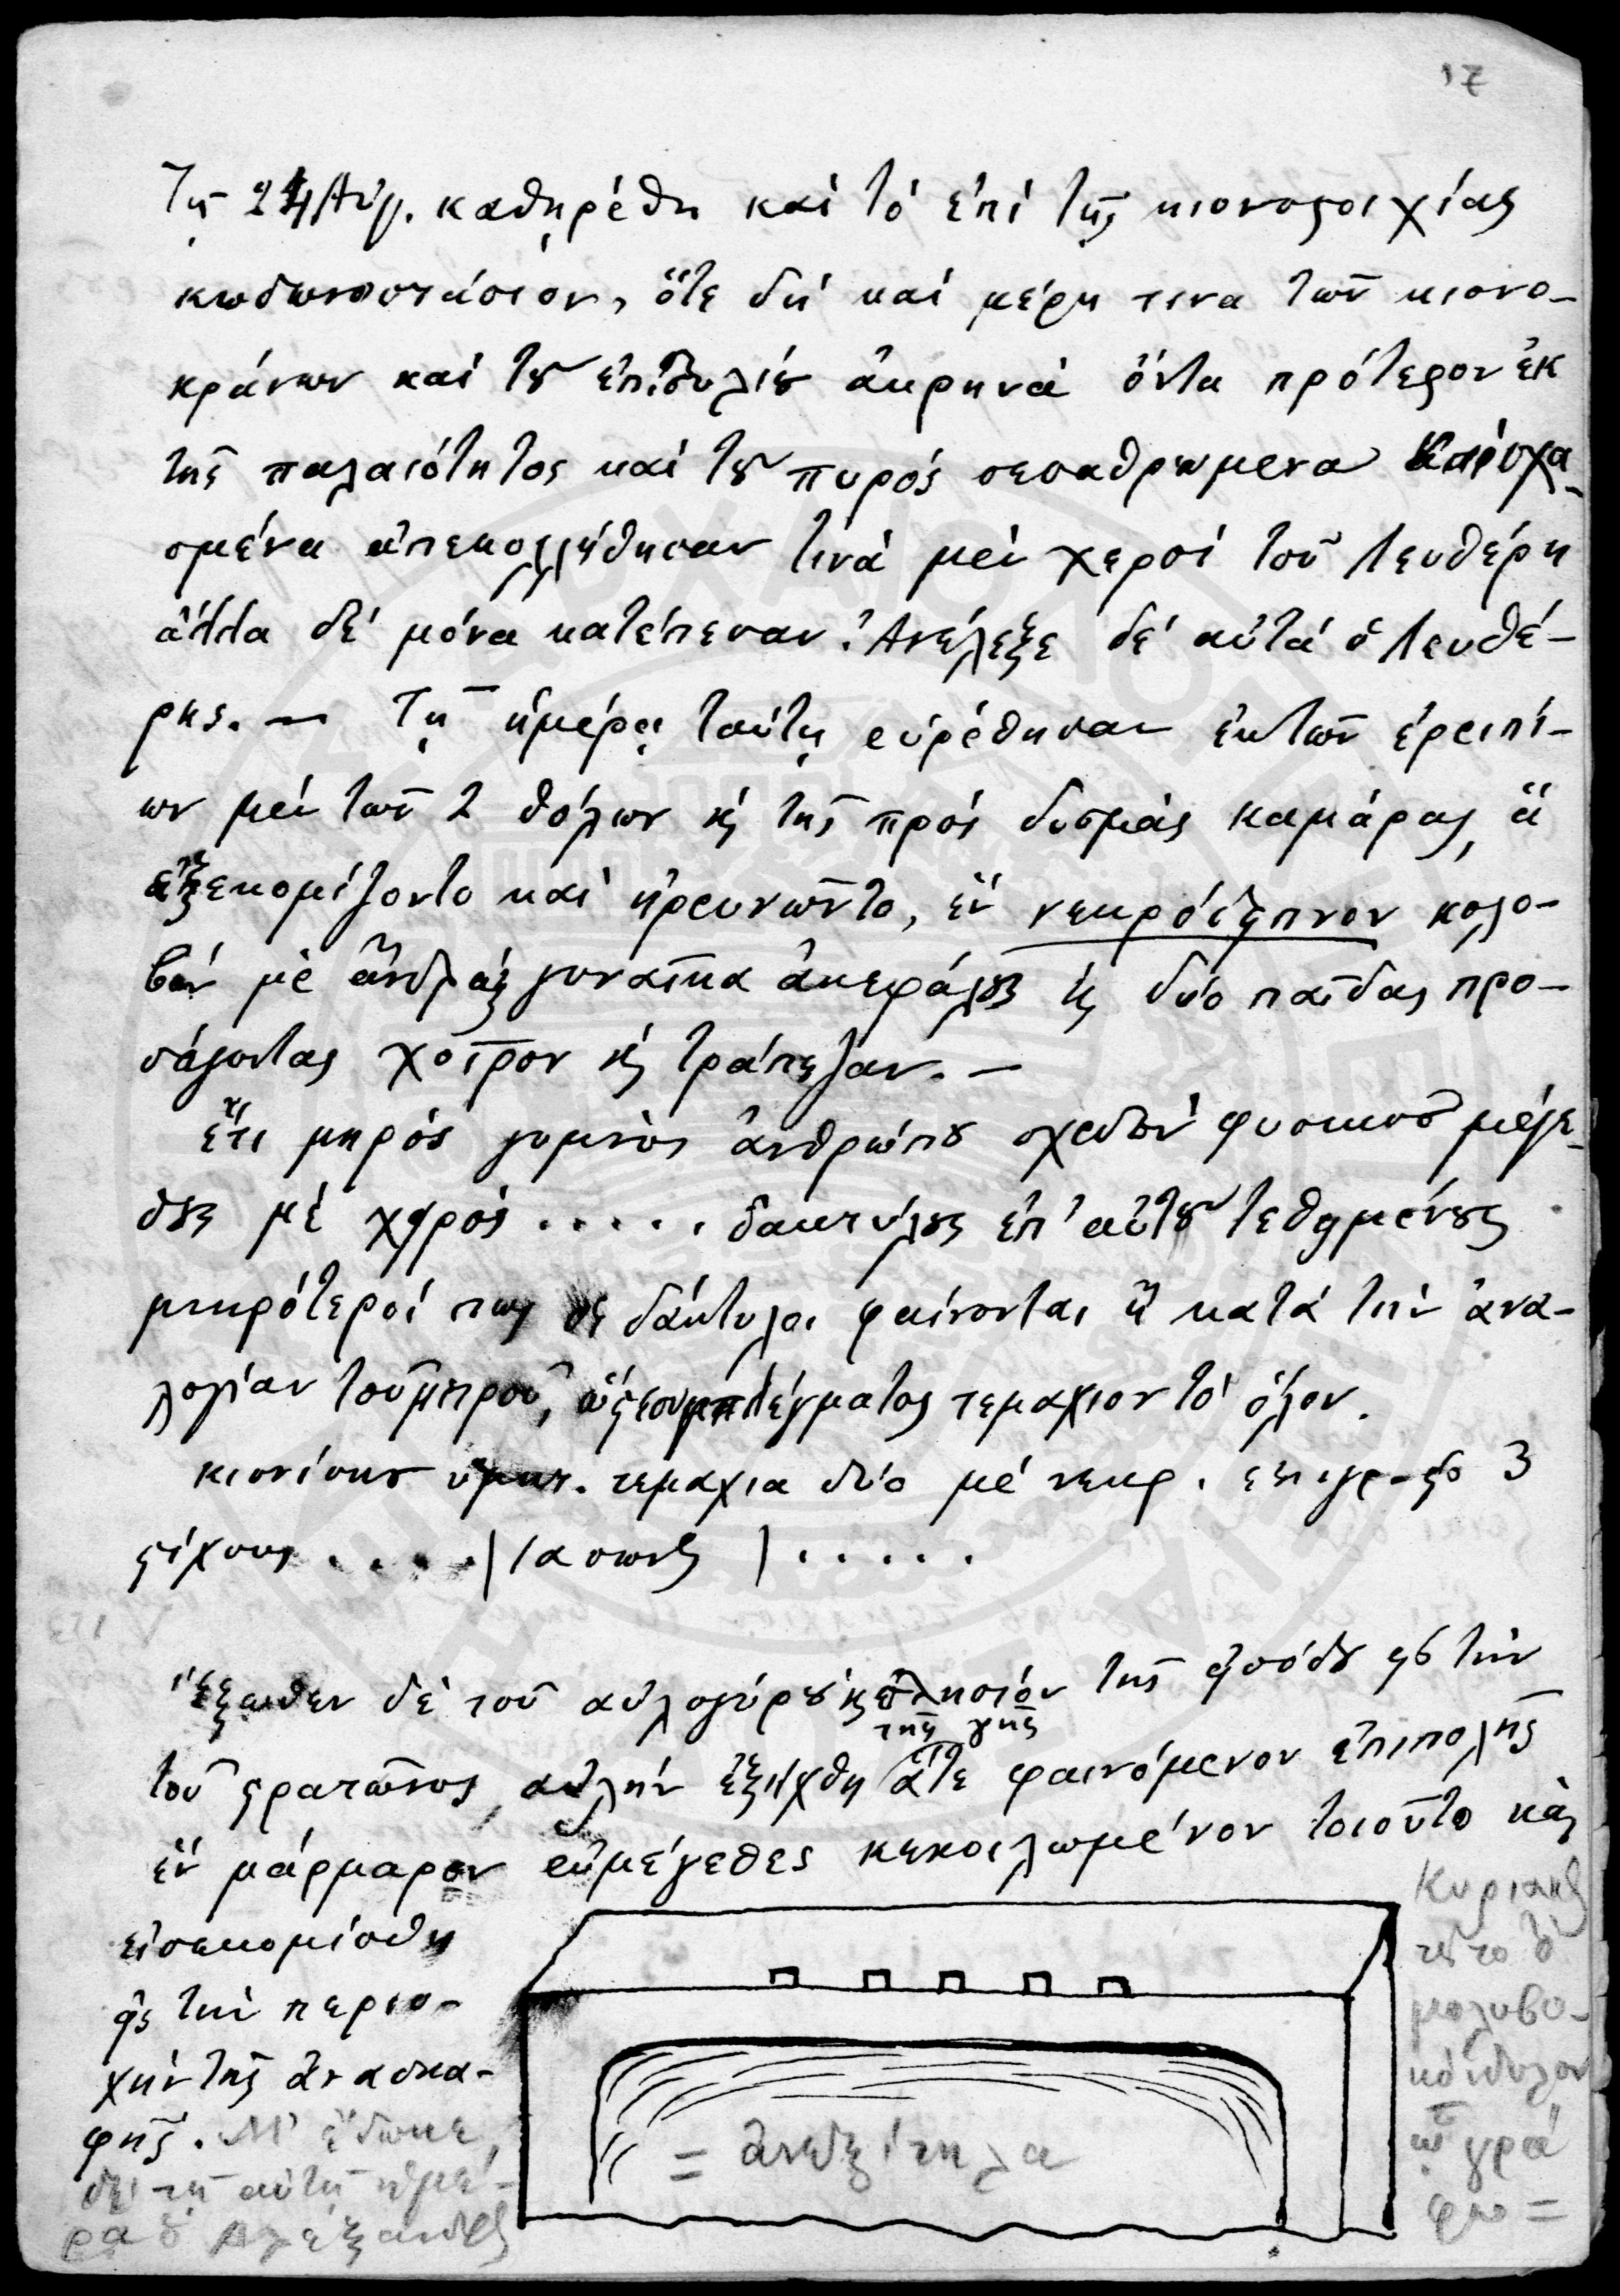 17
Τῇ 24 Αὐγ. καθῃρέθη καὶ τὸ ἐπὶ τῆς κιονοστοιχίας
κωδωνοστάσιον, ὅτε δὴ καὶ μέρη τινα τῶν κιονο-
κράνων καὶ τοῦ ἐπιστυλίου όντα πρότερον ἐκ
τῆς παλαιότητος καὶ τοῦ πυρός σεσαθρωμενα
σμένα ἀπεκολλήθησαν τινὰ μὲν χερσὶ τοῦ Λευθέρη
ἄλλα δὲ μόνα κατέπεσαν. Ἀνέλεξε δὲ αὐτὰ ὁ Λευθέ-
ρης. — Τῇ ἡμέρᾳ ταύτῃ εὑρέθησαν ἐκ τῶν ἐρειπί-
ων μὲν τῶν 2 θόλων κ̀ τῆς πρὸς δυσμὰς καμάρας, ἃ
ἐξεκομίζοντο καὶ ἠρευνῶντο, ἓν νεκρόδειπνον κολο-
βὸν μὲ ἄνδρα κ̀ γυναῖκα ἀκεφάλους κ̀ δύο παῖδας προ-
σάγοντας χοῖρον κ̀ τράπεζαν. —
ἔτι μηρὸς γυμνὸς ἀνθρώπου σχεδὸν φυσικοῦ μεγέ-
θους μὲ χειρὸς ..... δακτύλους ἐπ' αὐτοῦ τεθειμένους
μικρότεροί πως οἱ δάκτυλοι φαίνονται ἢ κατὰ τὴν ἀνα-
λογίαν τοῦ μηροῦ, συμπλέγματος τεμαχιον τὸ ὅλον.
κιονίσκου ὑμηττ. τεμαχια δύο μὲ νεκρ. επιγρ-
στίχους ..... | Ιασων | .....
Ἔξωθεν δὲ τοῦ αὐλογύρου κ̀ πλησιόν τῆς εἰσόδου εἰς τὴν
τῆς γῆς
τοῦ στρατῶνος αὐλὴν ἐξήχθη ἅτε φαινόμενον ἐπιπολῆς
ἓν μάρμαρον εὐμέγεθες κεκοιλωμένον τοιοῦτο κὰι
εἰσεκομίσθη
εἰς τὴν περιο-
χὴν τῆς ἀνασκα-
φῆς. Μ' ἔδωκε
δὲ τῇ αὐτῇ ἡμέ-
ρᾳ ὁ Ἀλέξανδρ
Κυριακ
τὸ
μολυβο-
κόνδυλον
ᾧ γρά
φω =
= ἀνεξίτηλα